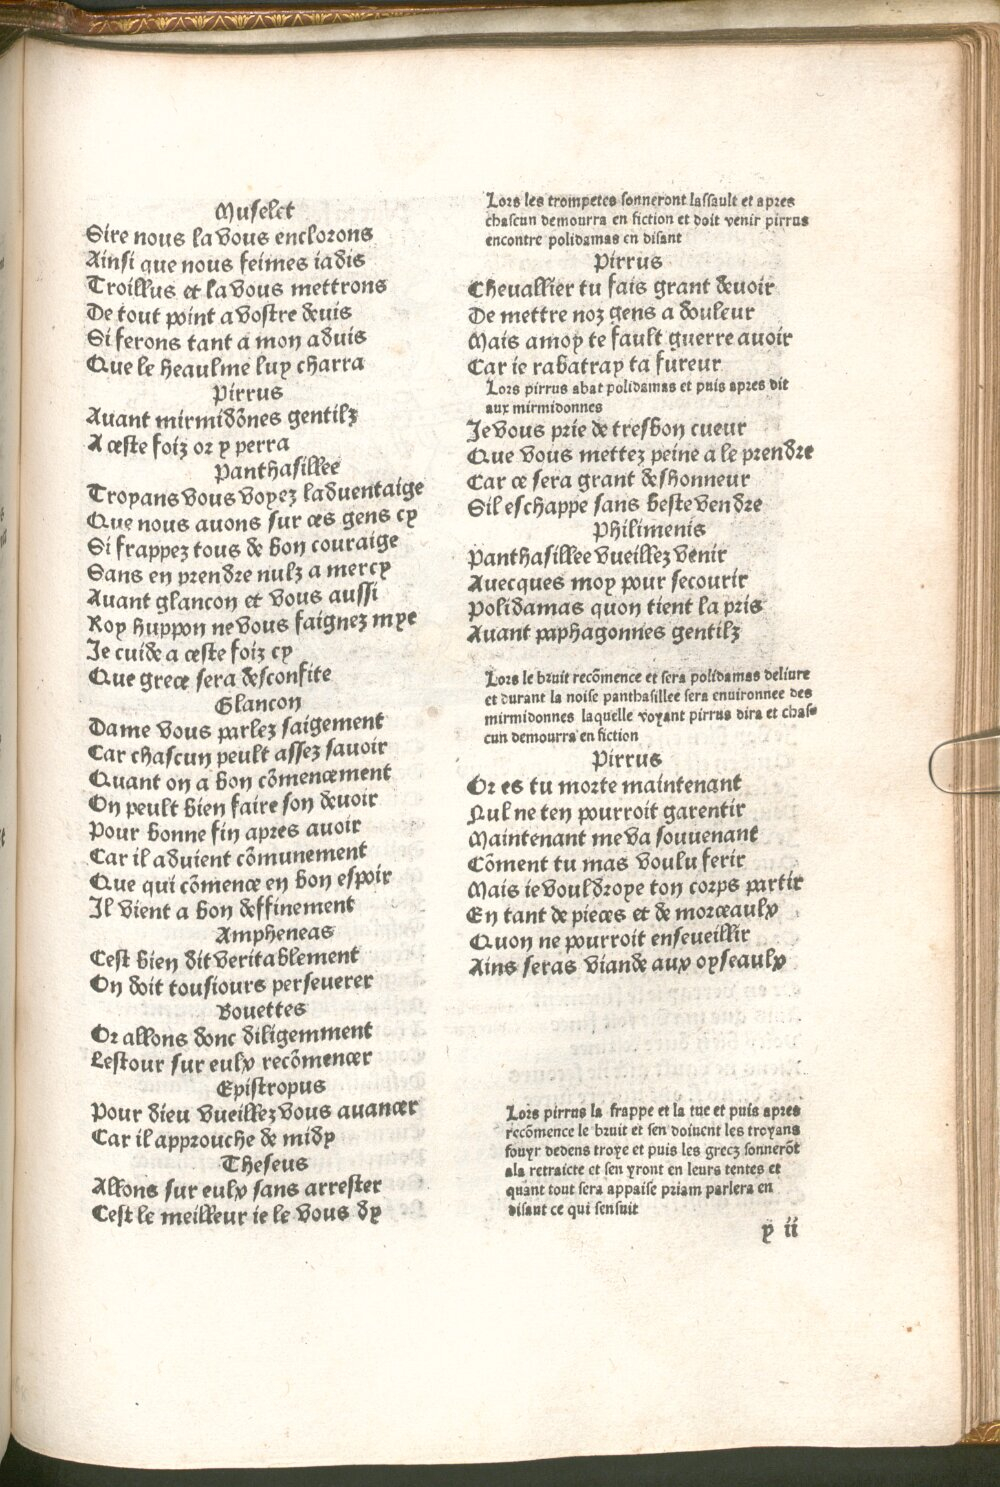 Muselet
Sire nous la vous enclorons
Ainsi que nous feimes iadis
Troillus et la vous mettrons
De tout point a vostre deuis
Si ferons tant a mon aduis
Que le heaulme luy charra
Pirrus
Auant mirmidōnes gentilz
A ceste foiz or y perra
Panthasillee
Troyans vous voyez laduentaige
Que nous auons sur ces gens cy
Si frappez tous de bon couraige
Sans en prendre nulz a mercy
Auant glancon et vous aussi
Roy huppon ne vous faignez mye
Je cuide a ceste foiz cy
Que grece sera desconfite
Glancon
Dame vous parlez saigement
Car chascun peult assez sauoir
Quant on a bon cōmencement
On peult bien faire son deuoir
Pour bonne fin apres auoir
Car il aduient cōmunement
Que qui cōmence en bon espoir
Il vient a bon deffinement
Ampheneas
Cest bien dit veritablement
On doit tousiours perseuerer
Bouettes
Or allons donc diligemment
Lestour sur eulx recōmencer
Epistropus
Pour dieu vueillez vous auancer
Car il approuche de midy
Theseus
Allons sur eulx sans arrester
Cest le meilleur ie le vous dy
Lors les trompetes sonneront lassault et apres
chascun demourra en fiction et doit venir pirrus
encontre polidamas en disant
Pirrus
Chevallier tu fais grant deuoir
De mettre noz gens a douleur
Mais a moy te fault guerre auoir
Car ie rabatray ta fureur
Lors pirrus abat polidamas et puis apres dit
aux mirmidonnes
Je vous prie de tresbon cueur
Que vous mettez peine a le prendre
Car ce sera grant deshonneur
Sil eschappe sans beste vendre
Philimenis
Panthasillee vueillez venir
Auecques moy pour secourir
Polidamas quon tient la pris
Auant paphagonnes gentilz
Lors le bruit recōmence et sera polidamas deliure
et durant la noise panthasillee sera enuironnee des
mirmidonnes laquelle voyant pirrus dira et chas-
cun demourra en fiction
Pirrus
Or es tu morte maintenant
Nul ne ten pourroit garentir
Maintenant me va souuenant
Cōment tu mas voulu ferir
Mais ie vouldroye ton corps partir
En tant de pieces et de morceaulx
Quon ne pourroit enseueillir
Ains seras viande aux oyseaulx
Lors pirrus la frappe et la tue et puis apres
recōmence le bruit et sen doiuent les troyans
fouyr dedens troye et puis les grecz sonnerōt
ala retraicte et sen yront en leurs tentes et
quant tout sera appaise priam parlera en
disant ce qui sensuit
y ii